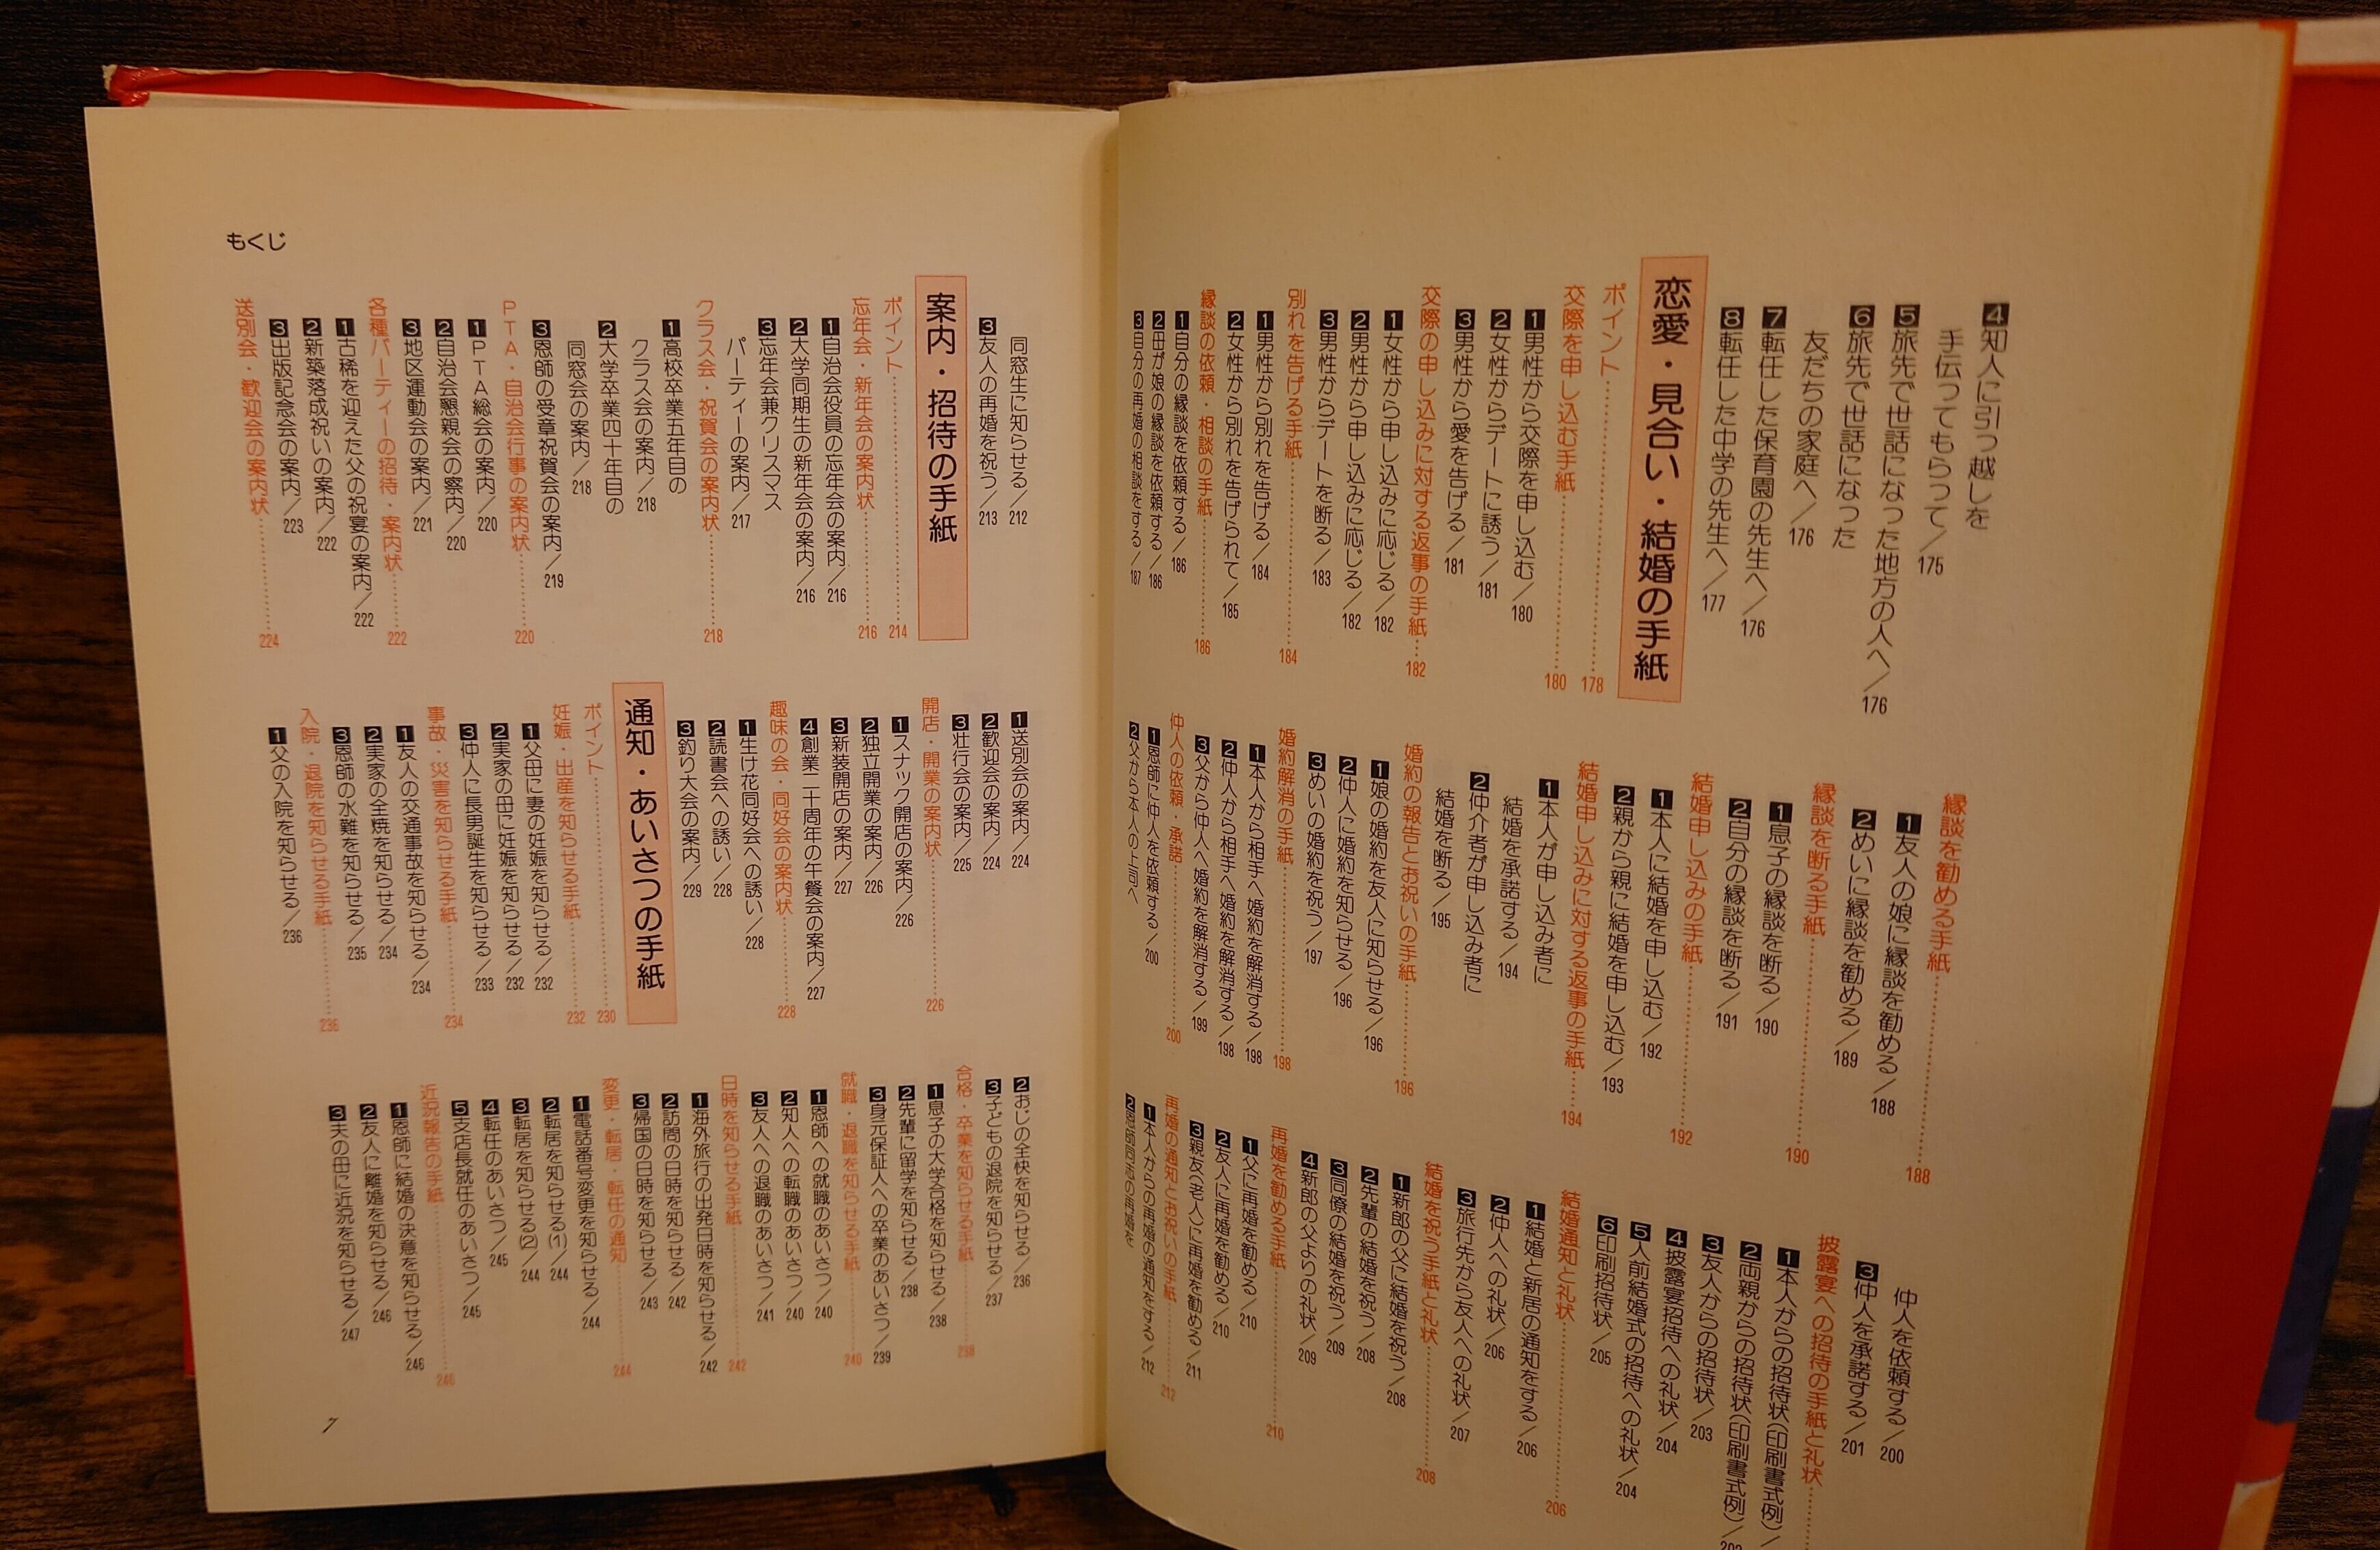 4 知人に引っ越しを
手伝ってもらって／175
5 旅先で世話になった地方の人へ／176
6 旅先で世話になった
友だちの家庭へ／176
7 転任した保育園の先生へ／176
8 転任した中学の先生へ／177
恋愛・見合い・結婚の手紙
ポイント……178
交際を申し込む手紙……180
1 男性から交際を申し込む／180
2 女性からデートに誘う／181
3 男性から愛を告げる／181
交際の申し込みに対する返事の手紙……182
1 女性から申し込みに応じる／182
2 男性から申し込みに応じる／182
3 男性からデートを断る／183
別れを告げる手紙……184
1 男性から別れを告げる／184
2 女性から別れを告げられて／185
縁談の依頼・相談の手紙……186
1 自分の縁談を依頼する／186
2 母が娘の縁談を依頼する／186
3 自分の再婚の相談をする／187
縁談を勧める手紙……188
1 友人の娘に縁談を勧める／188
2 めいに縁談を勧める／189
縁談を断る手紙……190
1 息子の縁談を断る／190
2 自分の縁談を断る／191
結婚申し込みの手紙……192
1 本人に結婚を申し込む／192
2 親から親に結婚を申し込む／193
結婚申し込みに対する返事の手紙……194
1 本人が申し込み者に
結婚を承諾する／194
2 仲介者が申し込み者に
結婚を断る／195
婚約の報告とお祝いの手紙……196
1 娘の婚約を友人に知らせる／196
2 仲人に婚約を知らせる／196
3 めいの婚約を祝う／197
婚約解消の手紙……198
1 本人から相手へ婚約を解消する／198
2 仲人から相手へ婚約を解消する／198
3 父から仲人へ婚約を解消する／199
仲人の依頼・承諾……200
1 恩師に仲人を依頼する／200
2 父から本人の上司へ
仲人を依頼する／200
3 仲人を承諾する／201
披露宴への招待の手紙と礼状……
1 本人からの招待状（印刷書式例）／
2 両親からの招待状（印刷書式例）／
3 友人からの招待状／203
4 披露宴招待への礼状／204
5 人前結婚式の招待への礼状／204
6 印刷招待状／205
結婚通知と礼状……206
1 結婚と新居の通知をする／206
2 仲人への礼状／206
3 旅行先から友人への礼状／207
結婚を祝う手紙と礼状……208
1 新郎の父に結婚を祝う／208
2 先輩の結婚を祝う／208
3 同僚の結婚を祝う／209
4 新郎の父よりの礼状／209
再婚を勧める手紙……210
1 父に再婚を勧める／210
2 友人に再婚を勧める／210
3 親友（老人）に再婚を勧める／211
再婚の通知とお祝いの手紙……212
1 本人からの再婚の通知をする／212
2 恩師同志の再婚を
もくじ
同窓生に知らせる／212
3 友人の再婚を祝う／213
案内・招待の手紙
ポイント……214
忘年会・新年会の案内状……216
1 自治会役員の忘年会の案内／216
2 大学同期生の新年会の案内／216
3 忘年会兼クリスマス
パーティーの案内／217
クラス会・祝賀会の案内状……218
1 高校卒業五年目の
クラス会の案内／218
2 大学卒業四十年目の
同窓会の案内／218
3 恩師の受章祝賀会の案内／219
PTA・自治会行事の案内状……220
1 PTA総会の案内／220
2 自治会懇親会の案内／220
3 地区運動会の案内／221
各種パーティーの招待・案内状……222
1 古稀を迎えた父の祝宴の案内／222
2 新築落成祝いの案内／222
3 出版記念会の案内／223
送別会・歓迎会の案内状……224
1 送別会の案内／224
2 歓迎会の案内／224
3 壮行会の案内／225
開店・開業の案内状……226
1 スナック開店の案内／226
2 独立開業の案内／226
3 新装開店の案内／227
4 創業二十周年の午餐会の案内／227
趣味の会・同好会の案内状……228
1 生け花同好会への誘い／228
2 読書会への誘い／228
3 釣り大会の案内／229
通知・あいさつの手紙
ポイント……230
妊娠・出産を知らせる手紙……232
1 父母に妻の妊娠を知らせる／232
2 実家の母に妊娠を知らせる／232
3 仲人に長男誕生を知らせる／233
事故・災害を知らせる手紙……234
1 友人の交通事故を知らせる／234
2 実家の全焼を知らせる／234
3 恩師の水難を知らせる／235
入院・退院を知らせる手紙……236
1 父の入院を知らせる／236
2 おじの全快を知らせる／236
3 子どもの退院を知らせる／237
合格・卒業を知らせる手紙……238
1 息子の大学合格を知らせる／238
2 先輩に留学を知らせる／238
3 身元保証人への卒業のあいさつ／239
就職・退職を知らせる手紙……240
1 恩師への就職のあいさつ／240
2 知人への転職のあいさつ／240
3 友人への退職のあいさつ／241
日時を知らせる手紙……242
1 海外旅行の出発日時を知らせる／242
2 訪問の日時を知らせる／242
3 帰国の日時を知らせる／243
変更・転居・転任の通知……244
1 電話番号変更を知らせる／244
2 転居を知らせる(1)／244
3 転居を知らせる(2)／244
4 転任のあいさつ／245
5 支店長就任のあいさつ／245
近況報告の手紙……246
1 恩師に結婚の決意を知らせる／246
2 友人に離婚を知らせる／246
3 夫の母に近況を知らせる／247
7